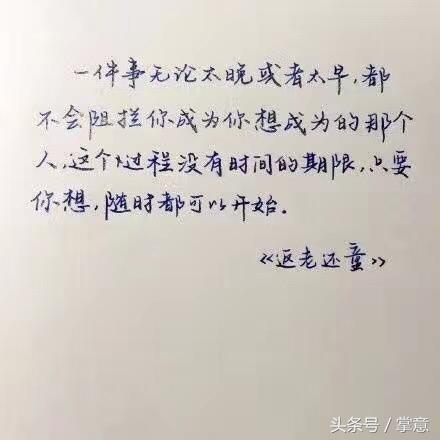 一件事无论太晚或者太早,都
不会阻拦你成为你想成为的那个
人,这个过程没有时间的期限,只要
你想,随时都可以开始。
《返老还童》
头条号 / 掌意